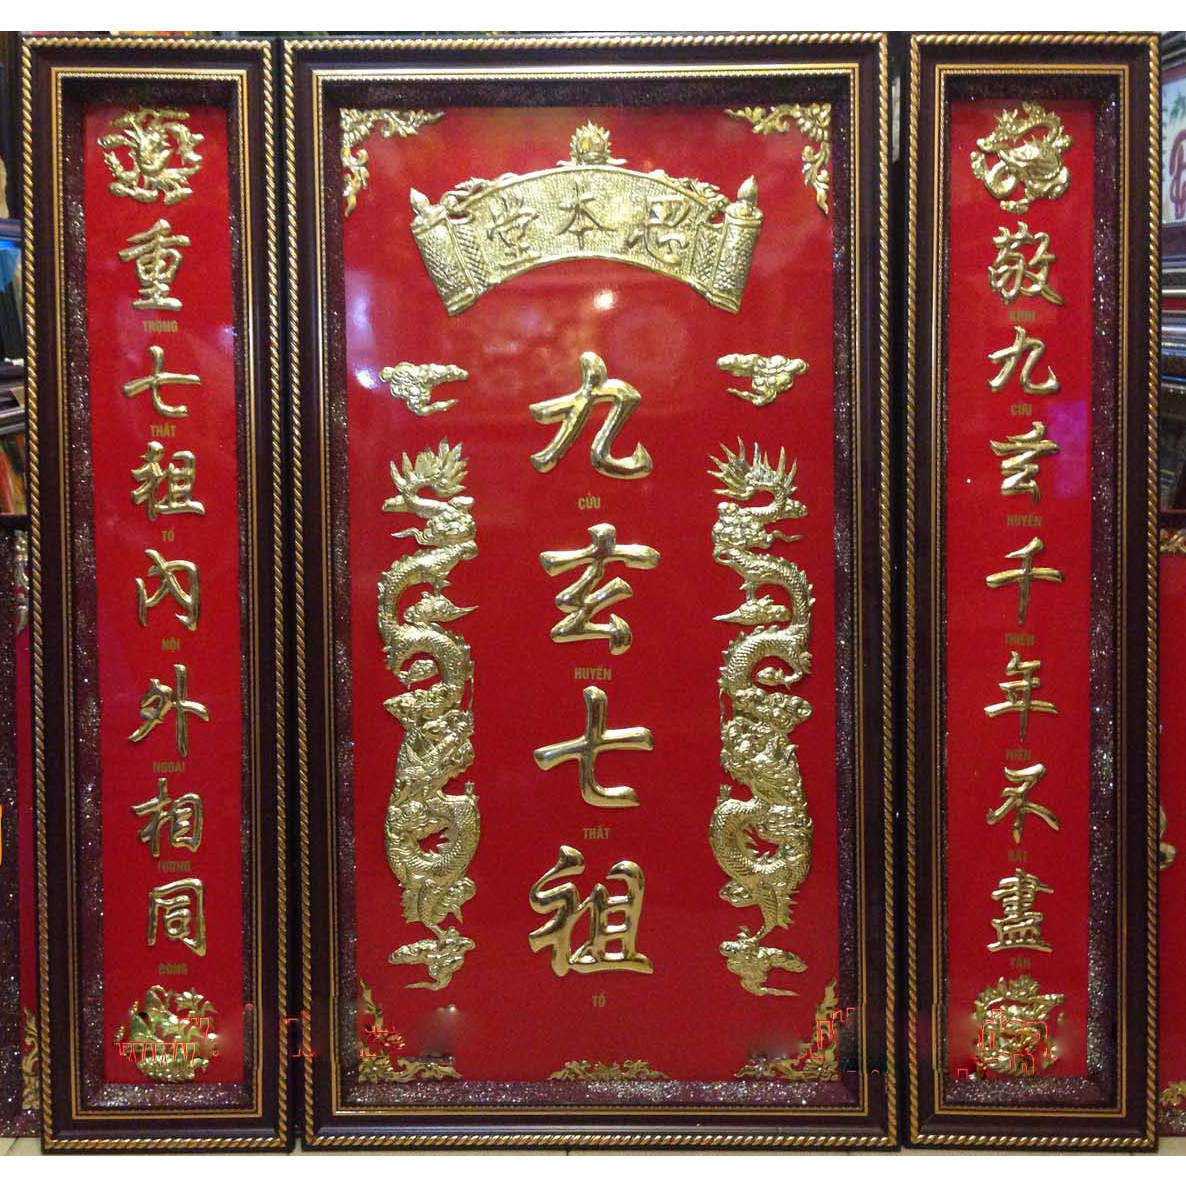 堂本思
九
CỬU
玄
HUYỀN
七
THẤT
祖
TỔ
敬
KÍNH
九
CỬU
玄
HUYỀN
千
THIÊN
年
NIÊN
不
BẤT
盡
TẬN
重
TRỌNG
七
THẤT
祖
TỔ
內
NỘI
外
NGOẠI
相
TƯƠNG
同
ĐỒNG